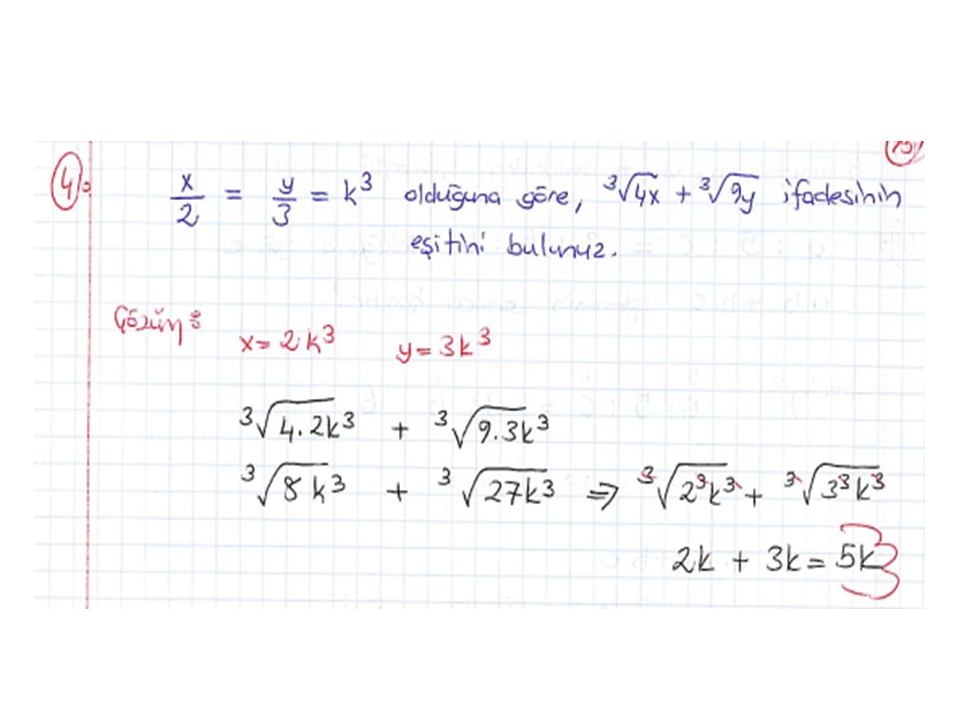 15
4.
x/2 = y/3 = k³ olduğuna göre, ³√4x + ³√9y ifadesinin
eşitini bulunuz.
Çözüm:
x = 2k³ y = 3k³
³√4.2k³ + ³√9.3k³
³√8k³ + ³√27k³ ⇒ ³√2³k³ + ³√3³k³
2k + 3k = 5k